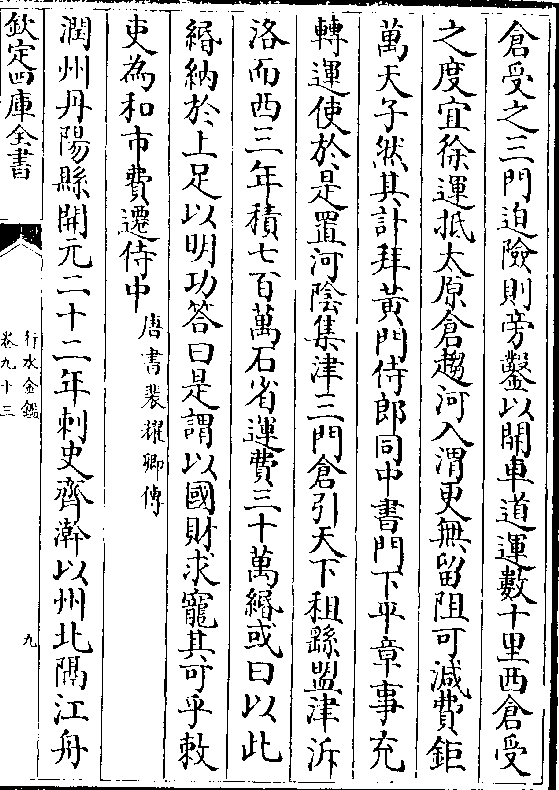 倉受之三門迫險則旁鑿以開車道運數十里西倉受
之度宜徐運抵太原倉趨河入渭更無留阻可減費鉅
萬天子然其計拜黃門侍郎同中書門下平章事充
轉運使於是置河陰集津三門倉引天下租繇盟津泝
洛而西三年積七百萬石省運費三十萬緡或曰以此
緡納於上足以明功答曰是謂以國財求寵其可乎敕
吏為和市費遷侍中
唐書裴耀卿傳
潤州丹陽縣開元二十二年刺史齊澣以州北隅江舟
欽定四庫全書
行水金鑑
卷九十三
九